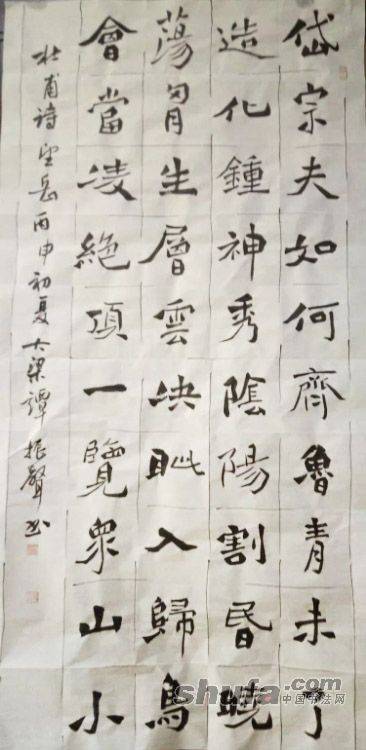 岱宗夫如何齊魯青未了
造化鍾神秀陰陽割昏曉
蕩胷生層雲決眦入歸鳥
會當凌絶頂一覽衆山小
杜甫诗望岳丙申初夏大梁譚振聲书
shufa.com
中国书法网